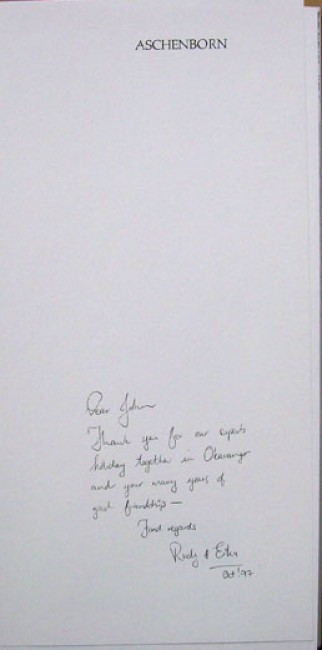 ASCHENBORN
Dear John
Thank you for our
holiday together in Okavango
and your many years of
good friendship —
Fond regards
Rudy &
Oct '97